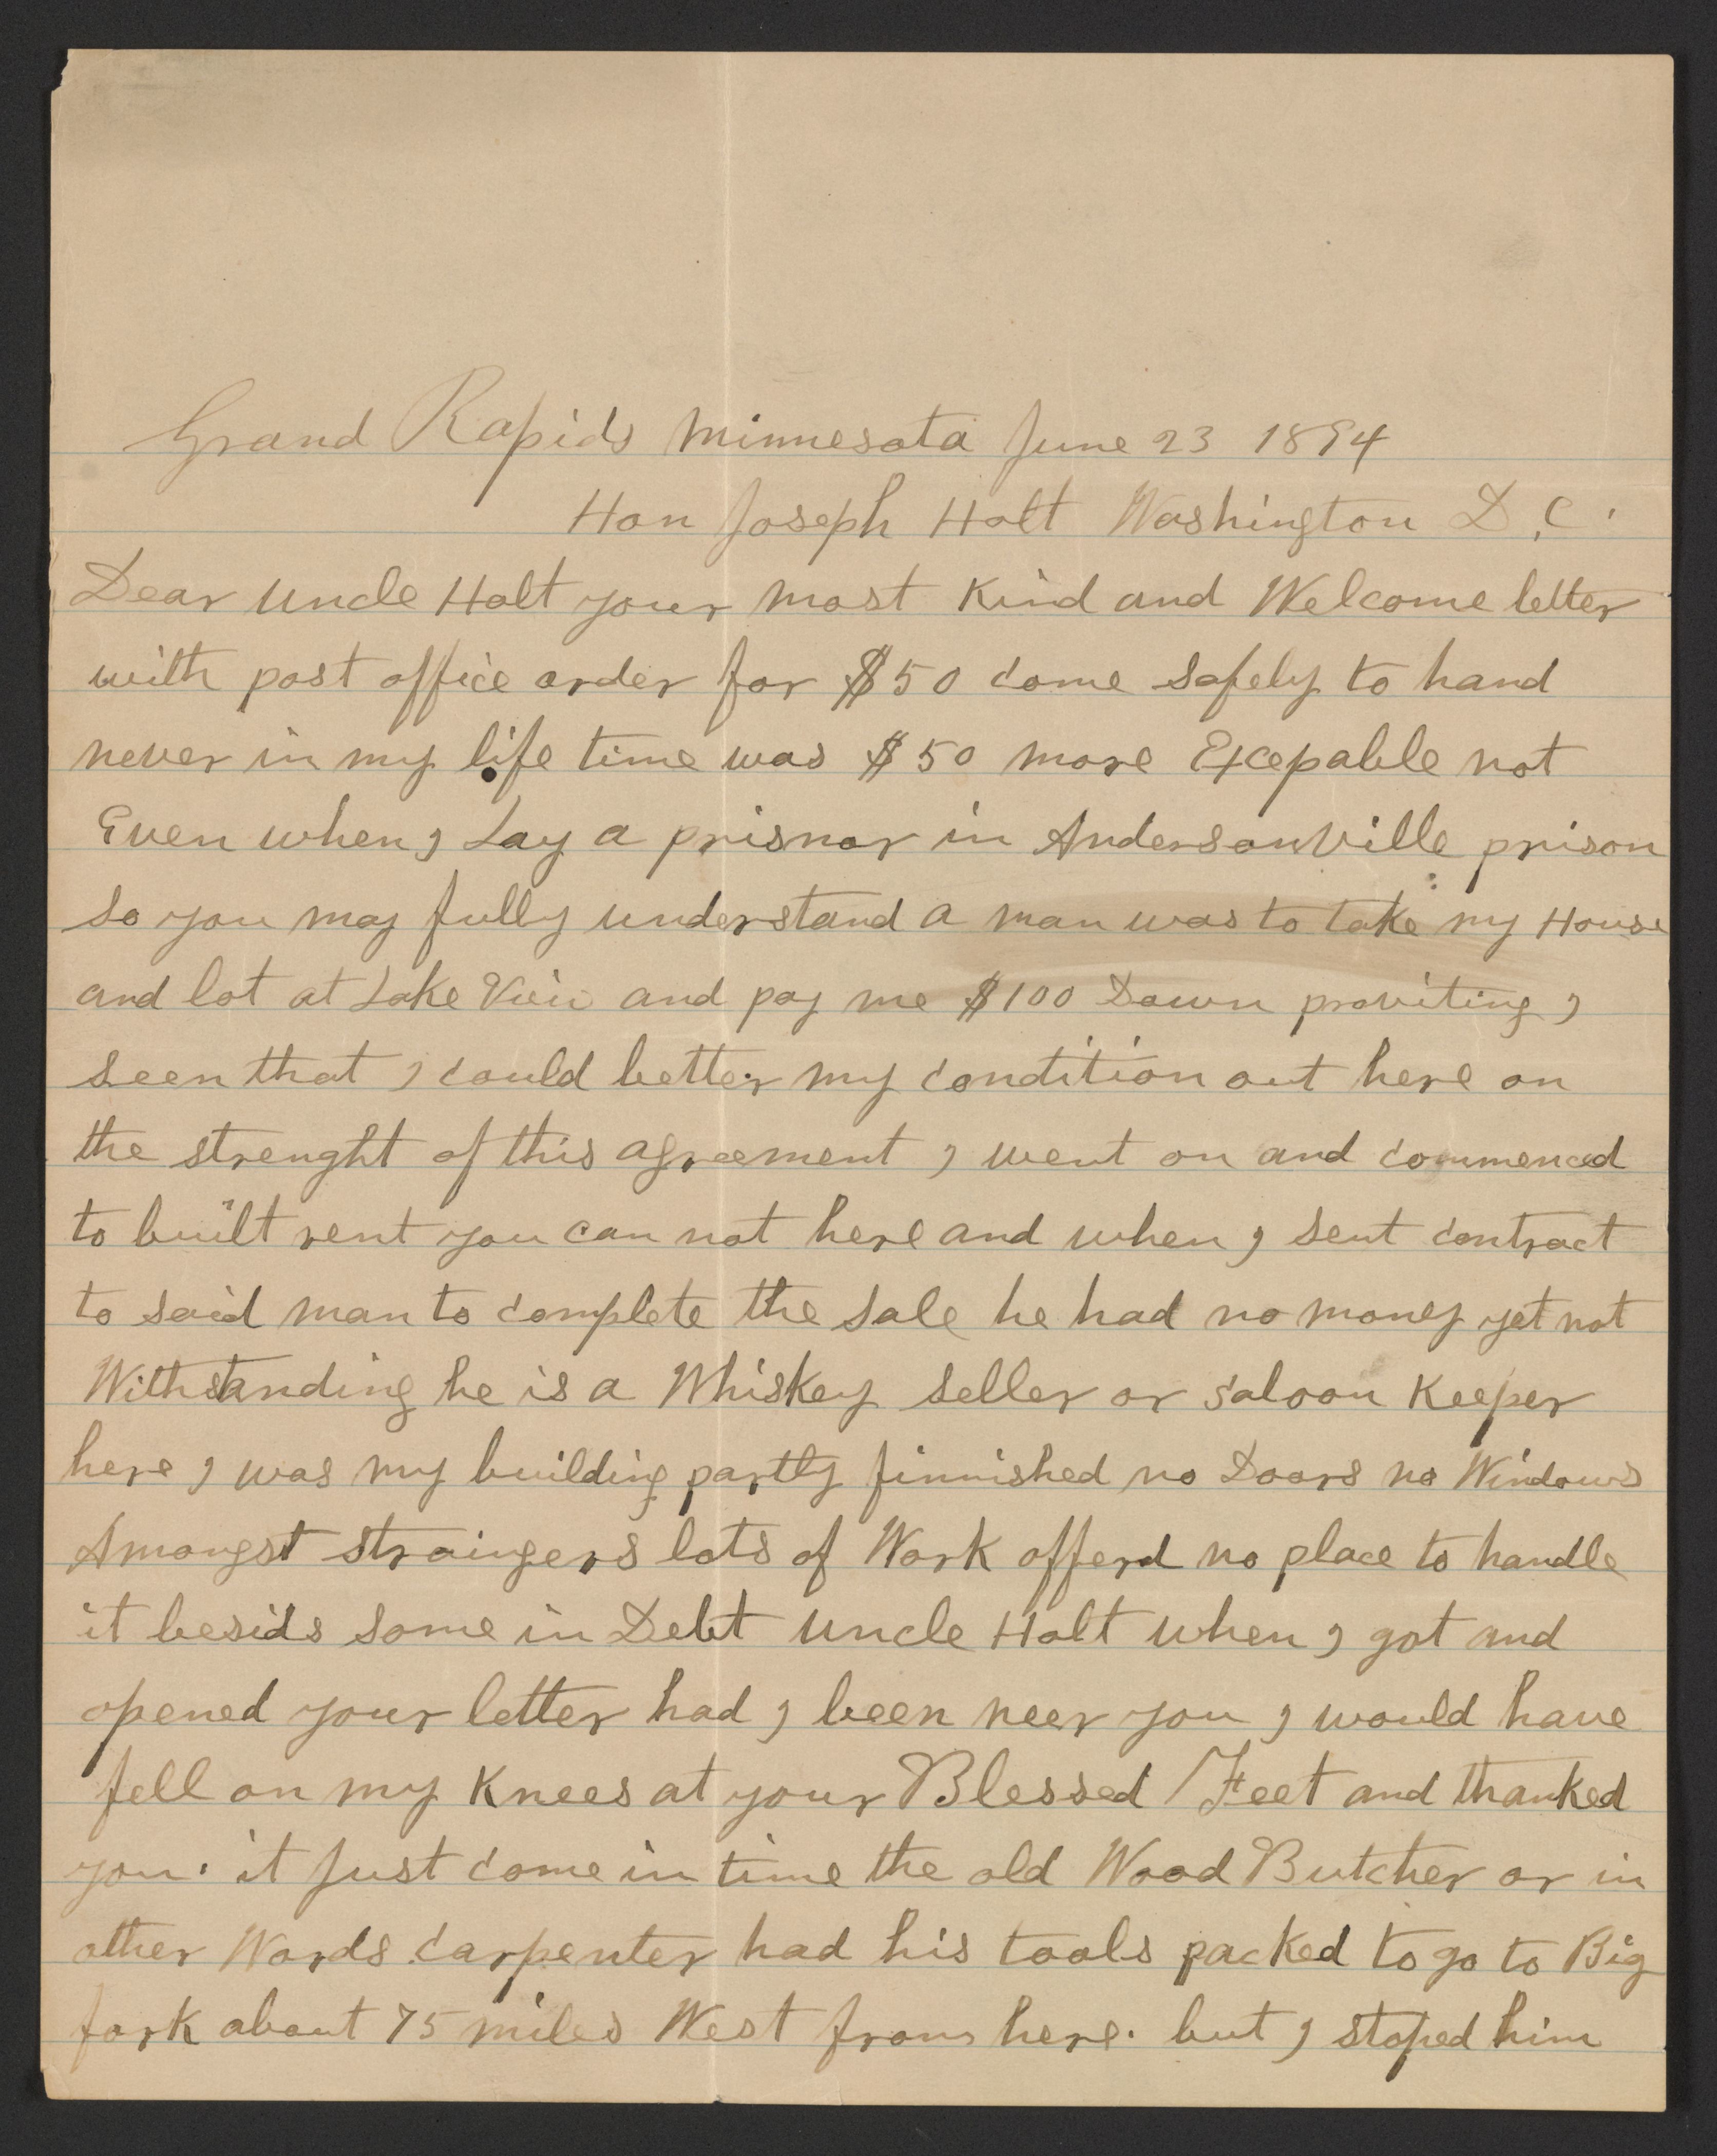 Grand Rapids Minnesota June 23 1894
Hon Joseph Holt Washington D.C.
Dear Uncle Holt your most Kind and Welcome letter
with post office order for $50 come safely to hand
never in my life time was $50 more Excepable not
Even when I Lay a prisnor in Andersonville prison
so you may fully understand a man was to take my House
and lot at Lake View and pay me $100 Down proviting I
seen that I could better my condition out here on
the strenght of this agreement I went on and commenced
to built rent you can not here and when I sent contract
to said man to complete the sale he had no money yet not
Withstanding he is a Whiskey seller or saloon Keeper
here I was my building partly finnished no Doors no Windows
Amongst straingers lots of Work offerd no place to handle
it besids some in Debt Uncle Holt when I got and
opened your letter had I been neer you I would have
fell on my Knees at your Blessed Feet and thanked
you. it Just come in time the old Wood Butcher or in
other Words carpenter had his tools packed to go to Big
fork about 75 miles West from here. but I stoped him